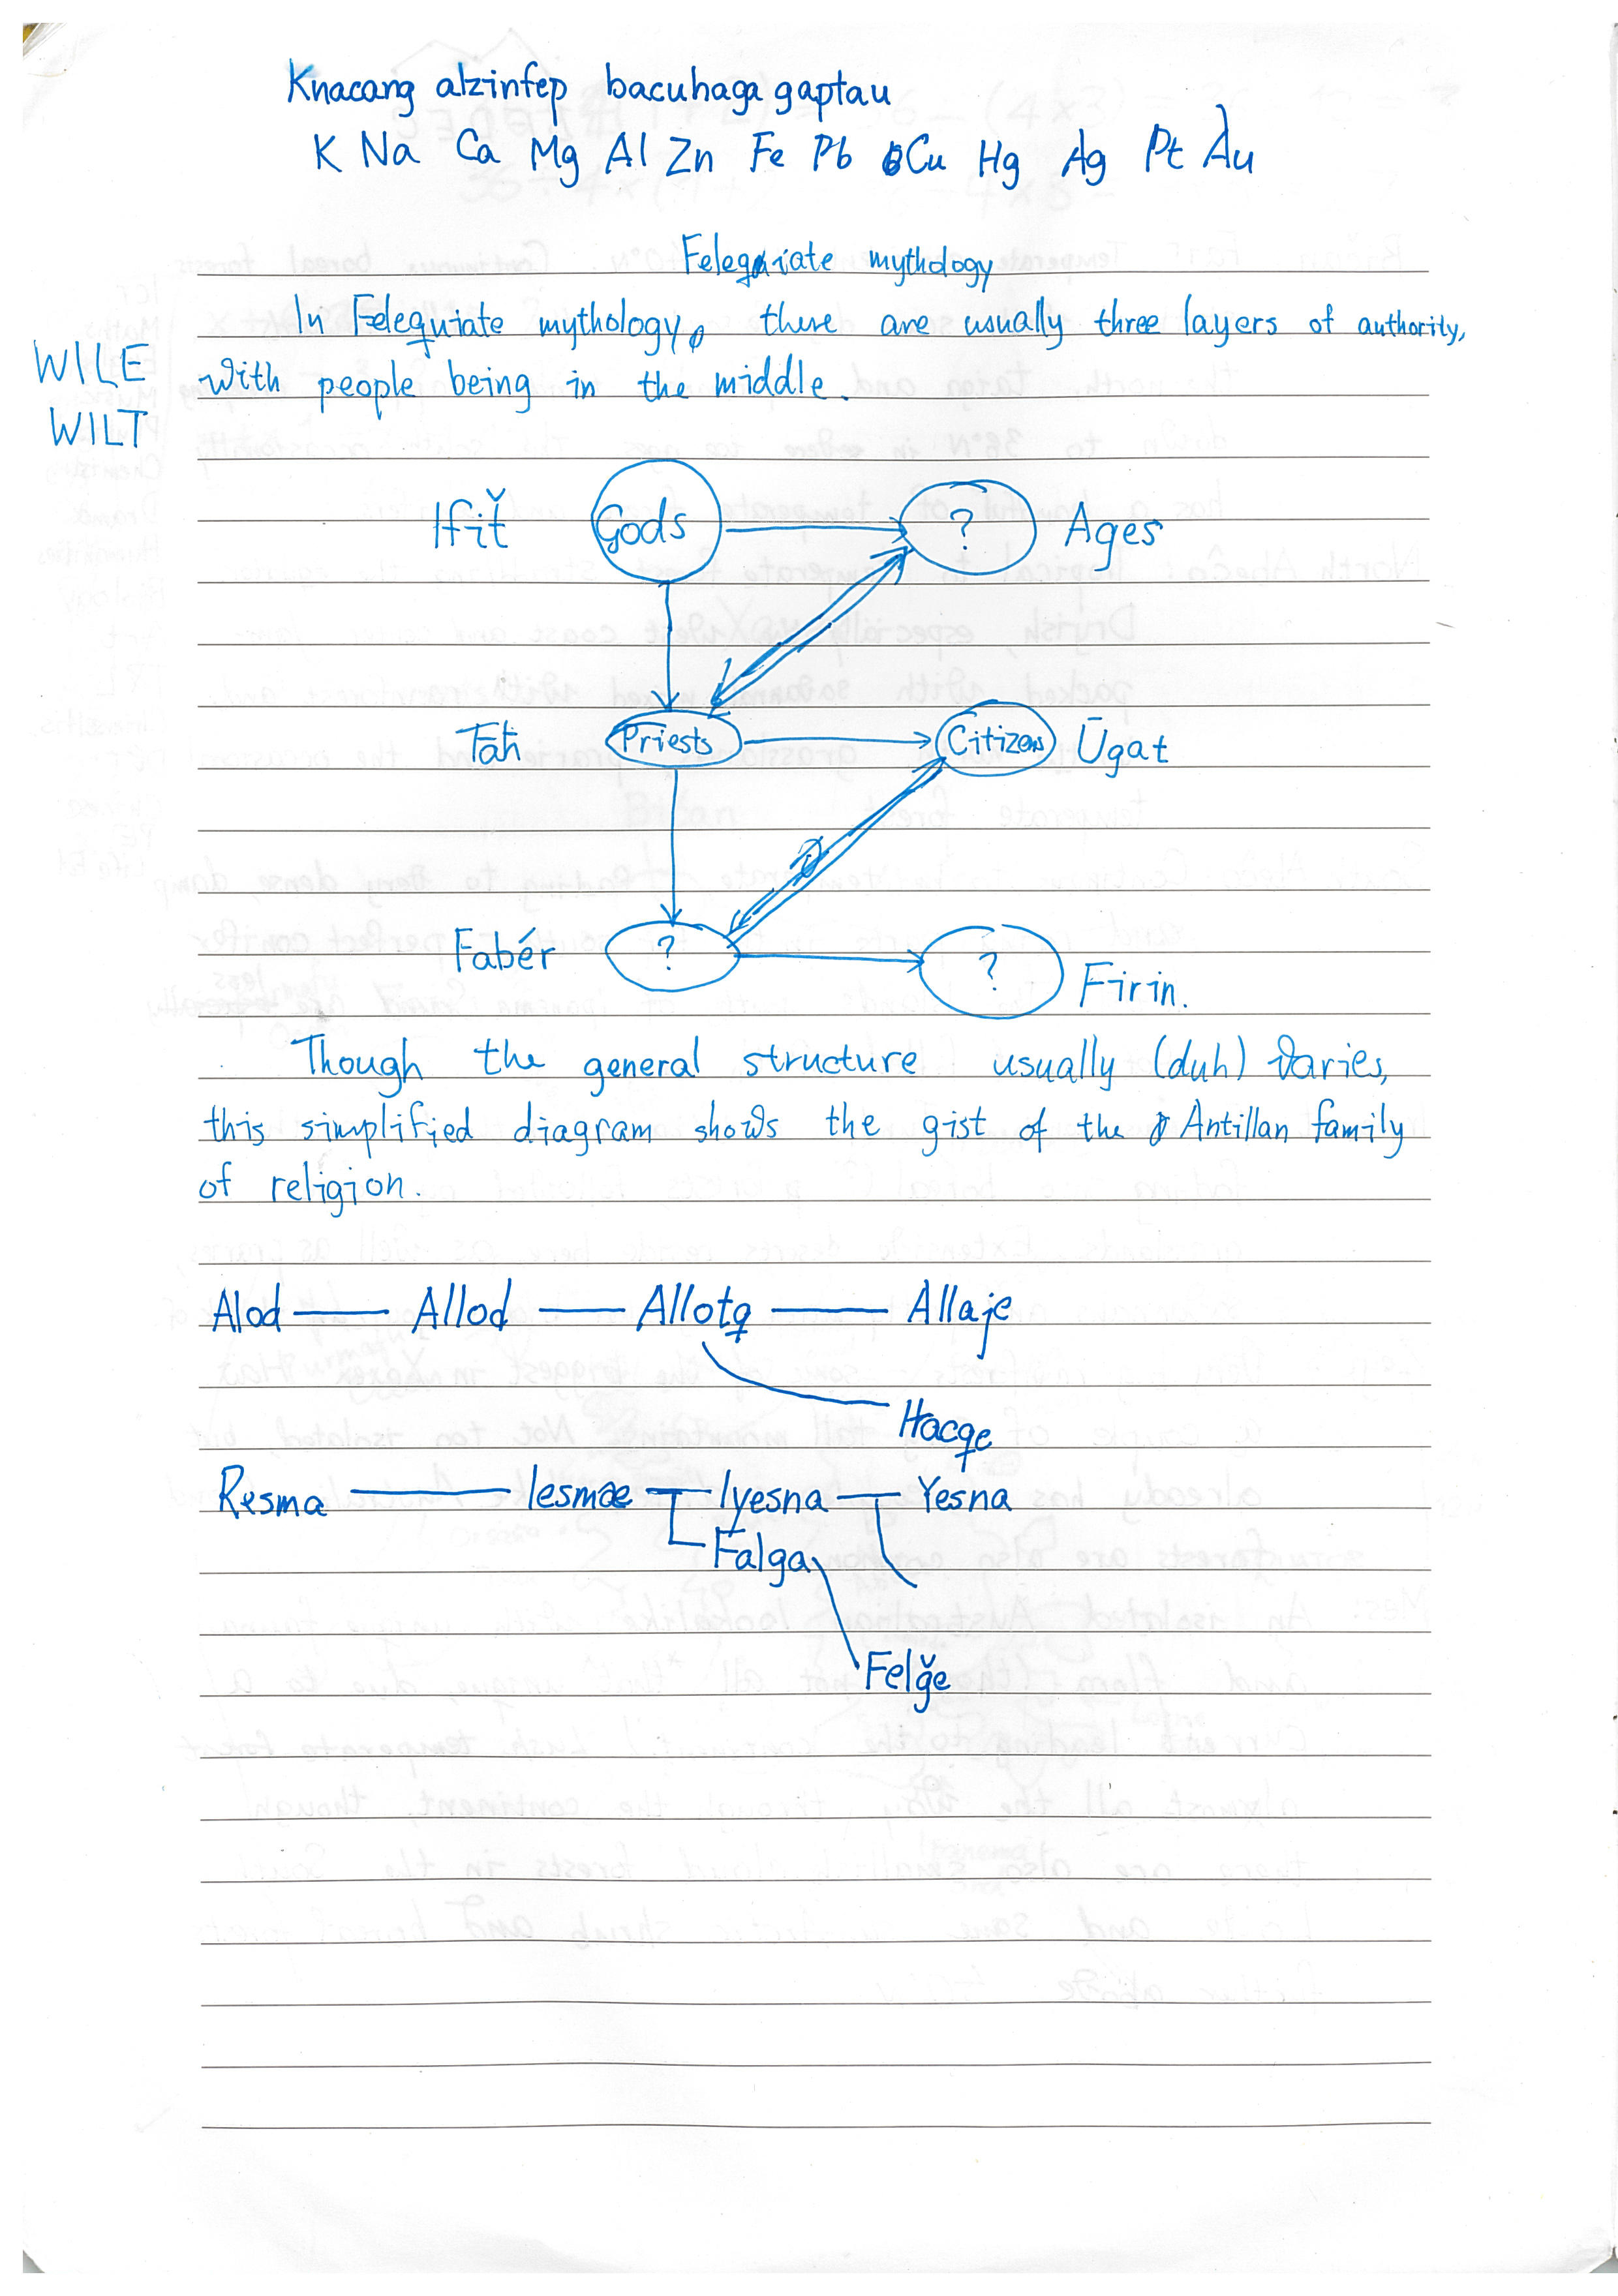 Knacang alzinfep bacuhaga gaptau
K Na Ca Mg Al Zn Fe Pb Cu Hg Ag Pt Au
mythology
In mythology, there are usually three layers of authority,
WILE
with people being in the middle.
WILT
Gods ? Ages
Priests Citizens Ūgat
Fabér ? ? Firin.
Though the general structure usually (duh) varies,
this simplified diagram shows the gist of the Antillan family
of religion.
Alod Allod Allotq Allaje
Hacqe
Resma Iesmae Iyesna Yesna
Falga
Felğe